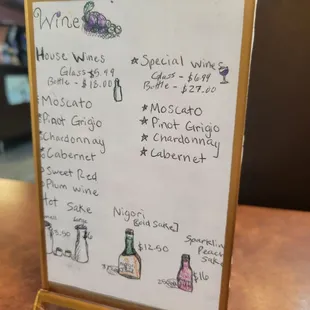 Wine
House Wines
Glass - $5.99
Bottle - $18.00
Moscato
Pinot Grigio
Chardonnay
Cabernet
Sweet Red
Plum wine
★ Special Wines
Glass - $6.99
Bottle - $27.00
★ Moscato
★ Pinot Grigio
★ Chardonnay
★ Cabernet
Hot Sake
Nigori
$12.50
Sparkling
Peach
Sake
$16